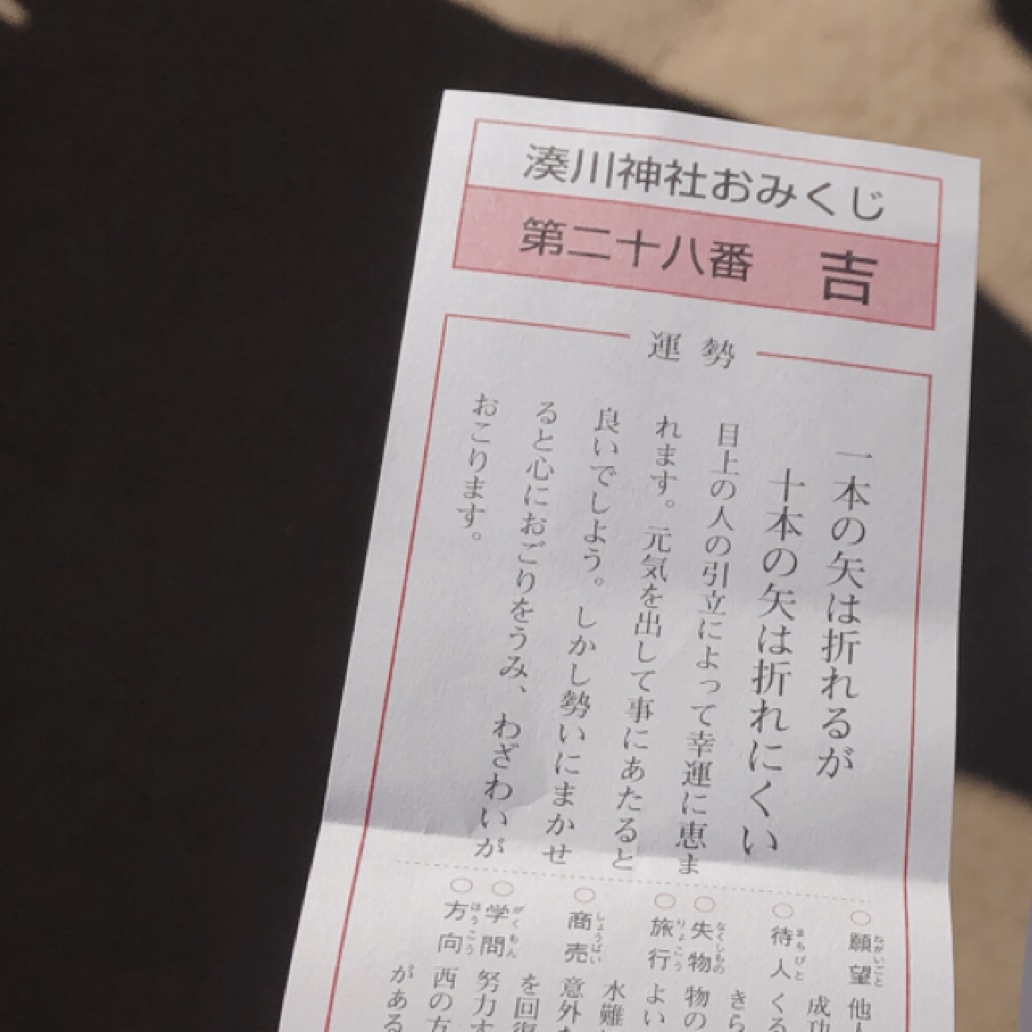 湊川神社おみくじ
第二十八番 吉
運勢
一本の矢は折れるが
十本の矢は折れにくい
目上の人の引立によって幸運に恵ま
れます。元気を出して事にあたると
良いでしよう。しかし勢いにまかせ
ると心におごりをうみ、わざわいが
おこります。
○願望 ねがいごと 他人
成功
○待人 まちびと くる
きら
○失物 なくしもの 物の
○旅行 りょこう よい
水難
○商売 しょうばい 意外な
を回復
○学問 がくもん 努力す
○方向 ほうこう 西の方
がある